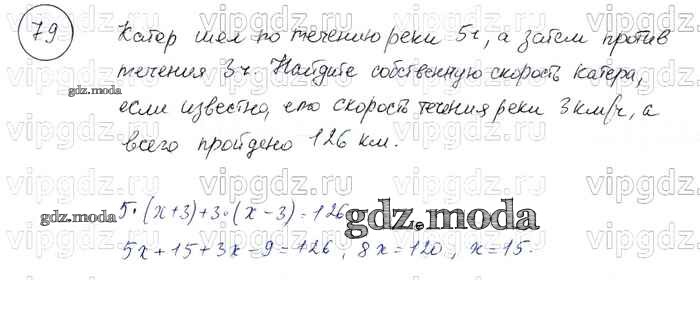 79
Катер шел по течению реки 5ч, а затем против
течения 3ч. Найдите собственную скорость катера,
если известно, что скорость течения реки 3 км/ч, а
всего пройдено 126 км.
5·(x+3)+3·(x-3)=126
5x+15+3x-9=126, 8x=120, x=15.
gdz.moda
gdz.moda
gdz.moda
vipgdz.ru vipgdz.ru vipgdz.ru vipgdz.ru